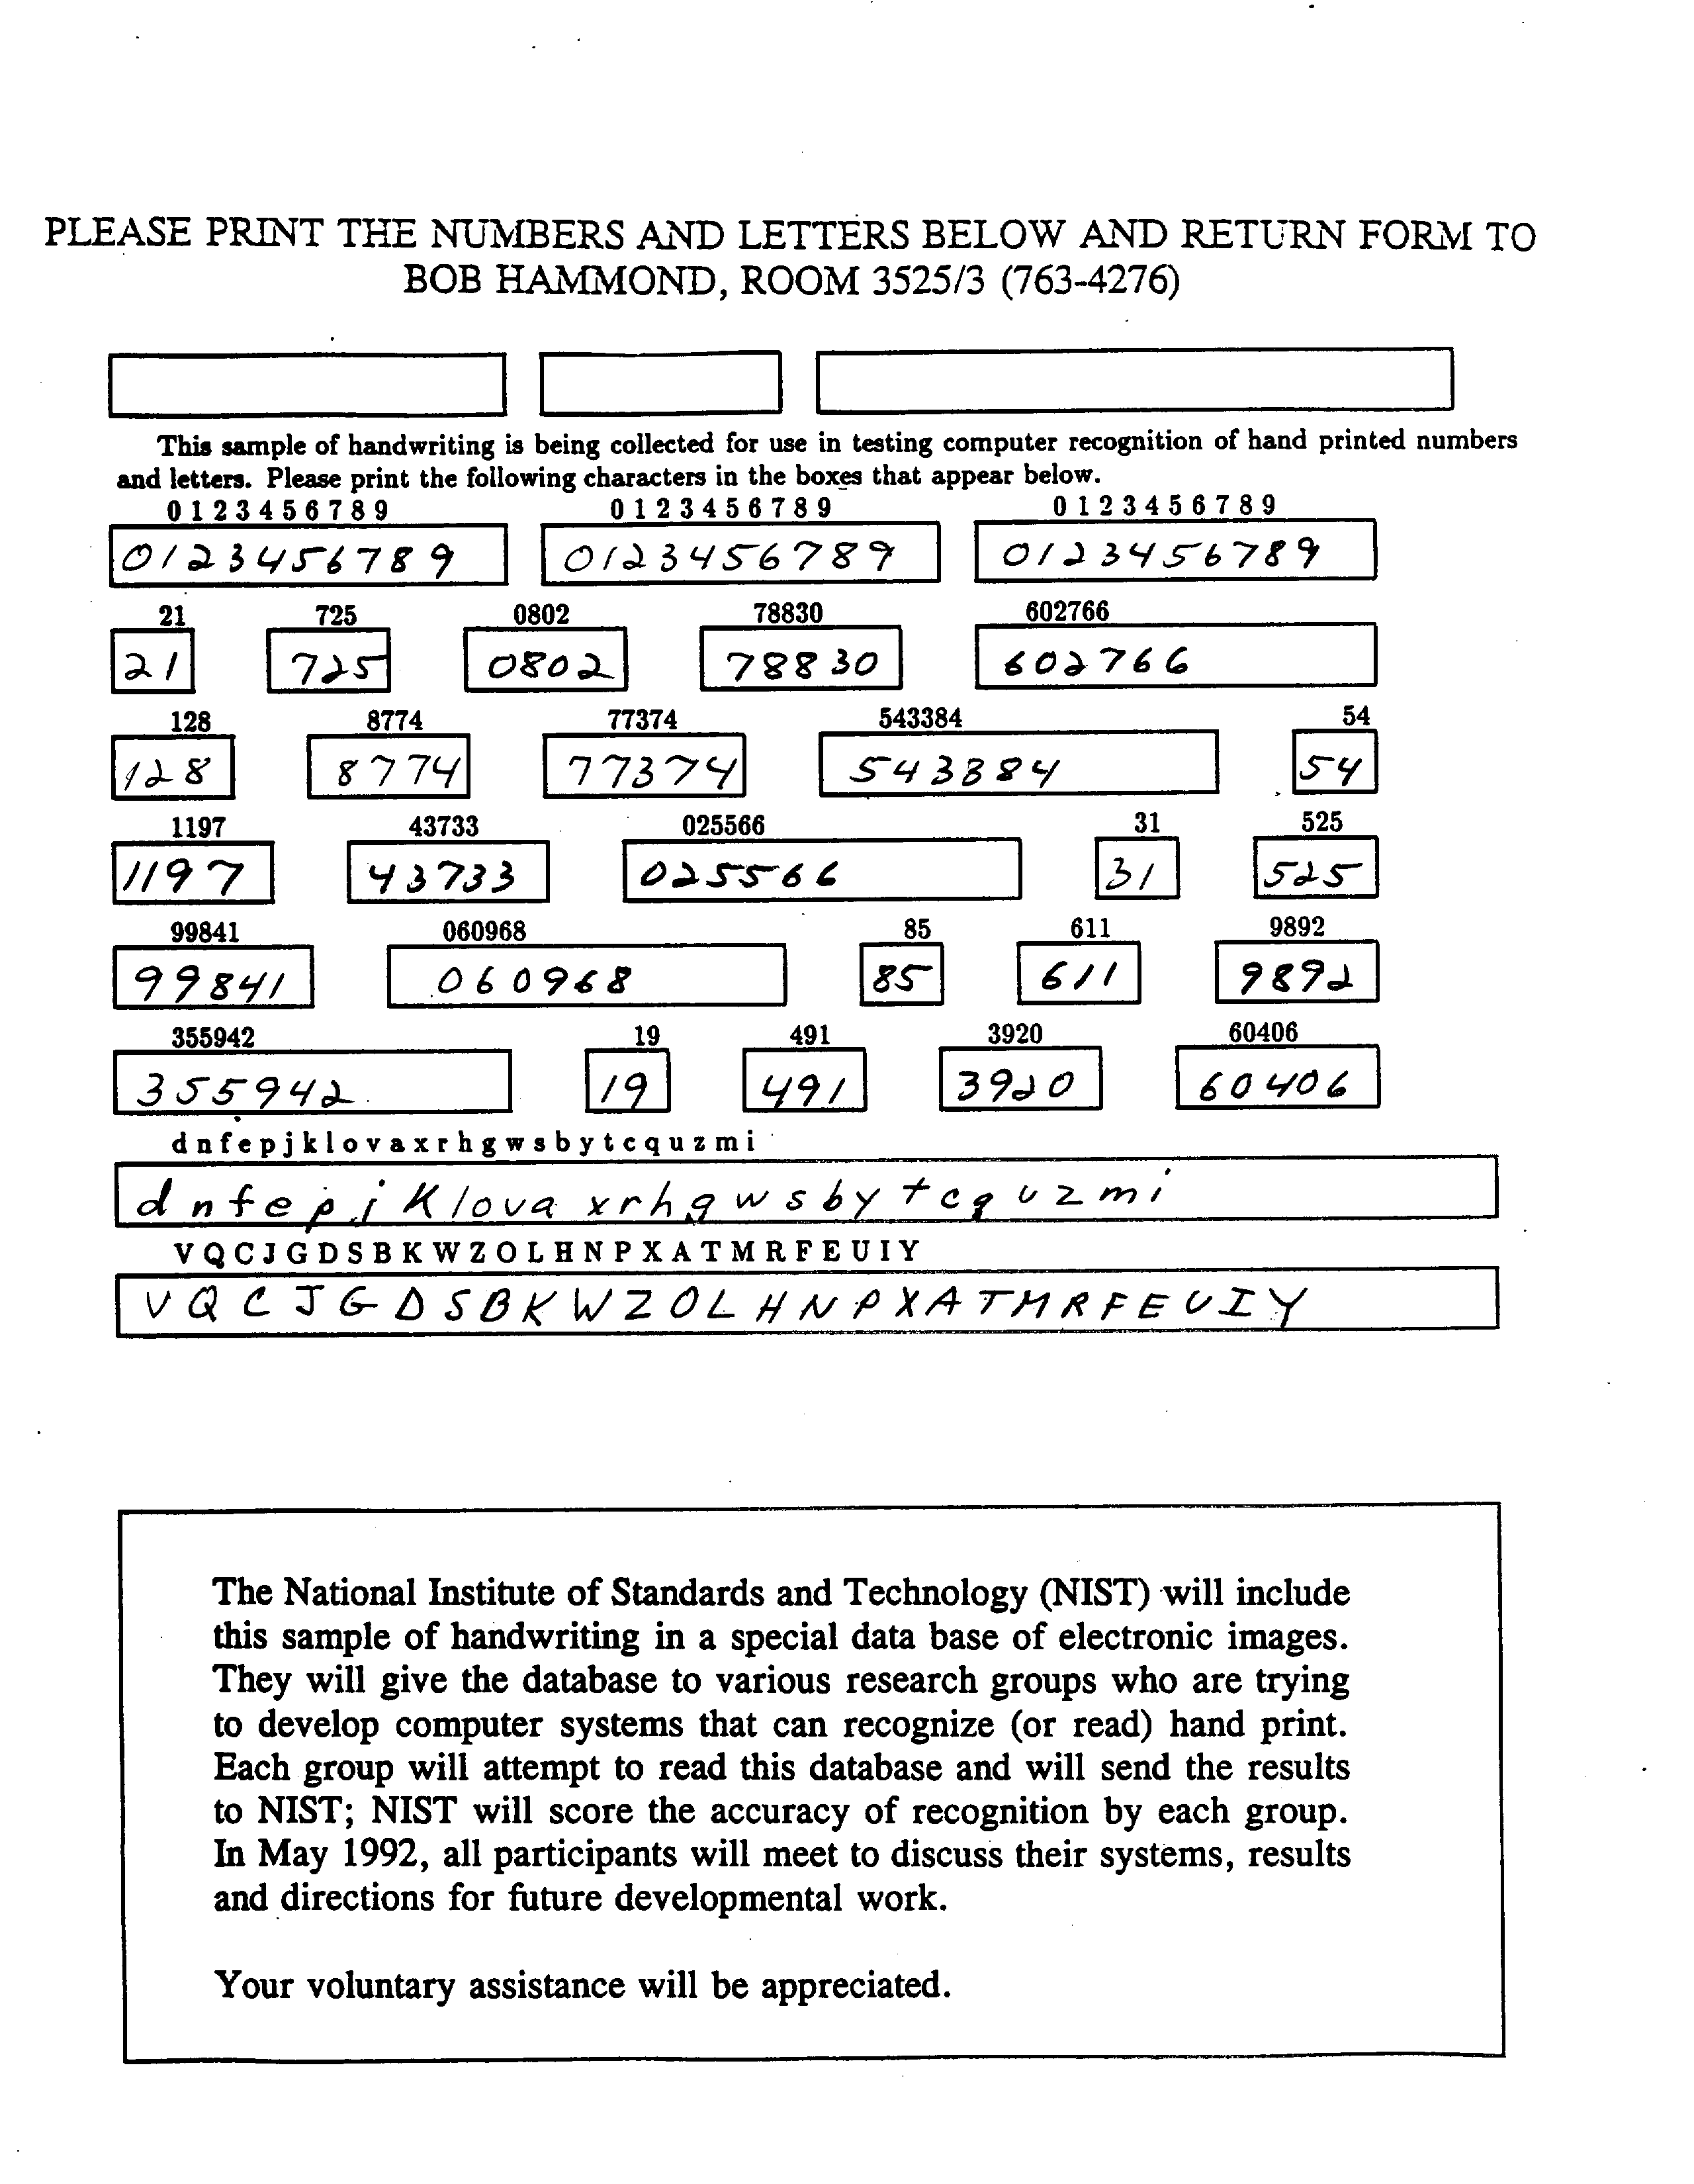 PLEASE PRINT THE NUMBERS AND LETTERS BELOW AND RETURN FORM TO
BOB HAMMOND, ROOM 3525/3 (763-4276)
This sample of handwriting is being collected for use in testing computer recognition of hand printed numbers
and letters. Please print the following characters in the boxes that appear below.
0 1 2 3 4 5 6 7 8 9 0 1 2 3 4 5 6 7 8 9 0 1 2 3 4 5 6 7 8 9
0123456789 0123456789 0123456789
21 725 0802 78830 602766
21 725 0802 78830 602766
128 8774 77374 543384 54
128 8774 77374 543384 54
1197 43733 025566 31 525
1197 43733 025566 31 525
99841 060968 85 611 9892
99841 060968 85 611 9892
355942 19 491 3920 60406
355942 19 491 3920 60406
d n f e p j k l o v a x r h g w s b y t c q u z m i
d n f e p j K l o v a x r h g w s b y t c q u z m i
V Q C J G D S B K W Z O L H N P X A T M R F E U I Y
V Q C J G D S B K W Z O L H N P X A T M R F E U I Y
The National Institute of Standards and Technology (NIST) will include
this sample of handwriting in a special data base of electronic images.
They will give the database to various research groups who are trying
to develop computer systems that can recognize (or read) hand print.
Each group will attempt to read this database and will send the results
to NIST; NIST will score the accuracy of recognition by each group.
In May 1992, all participants will meet to discuss their systems, results
and directions for future developmental work.
Your voluntary assistance will be appreciated.